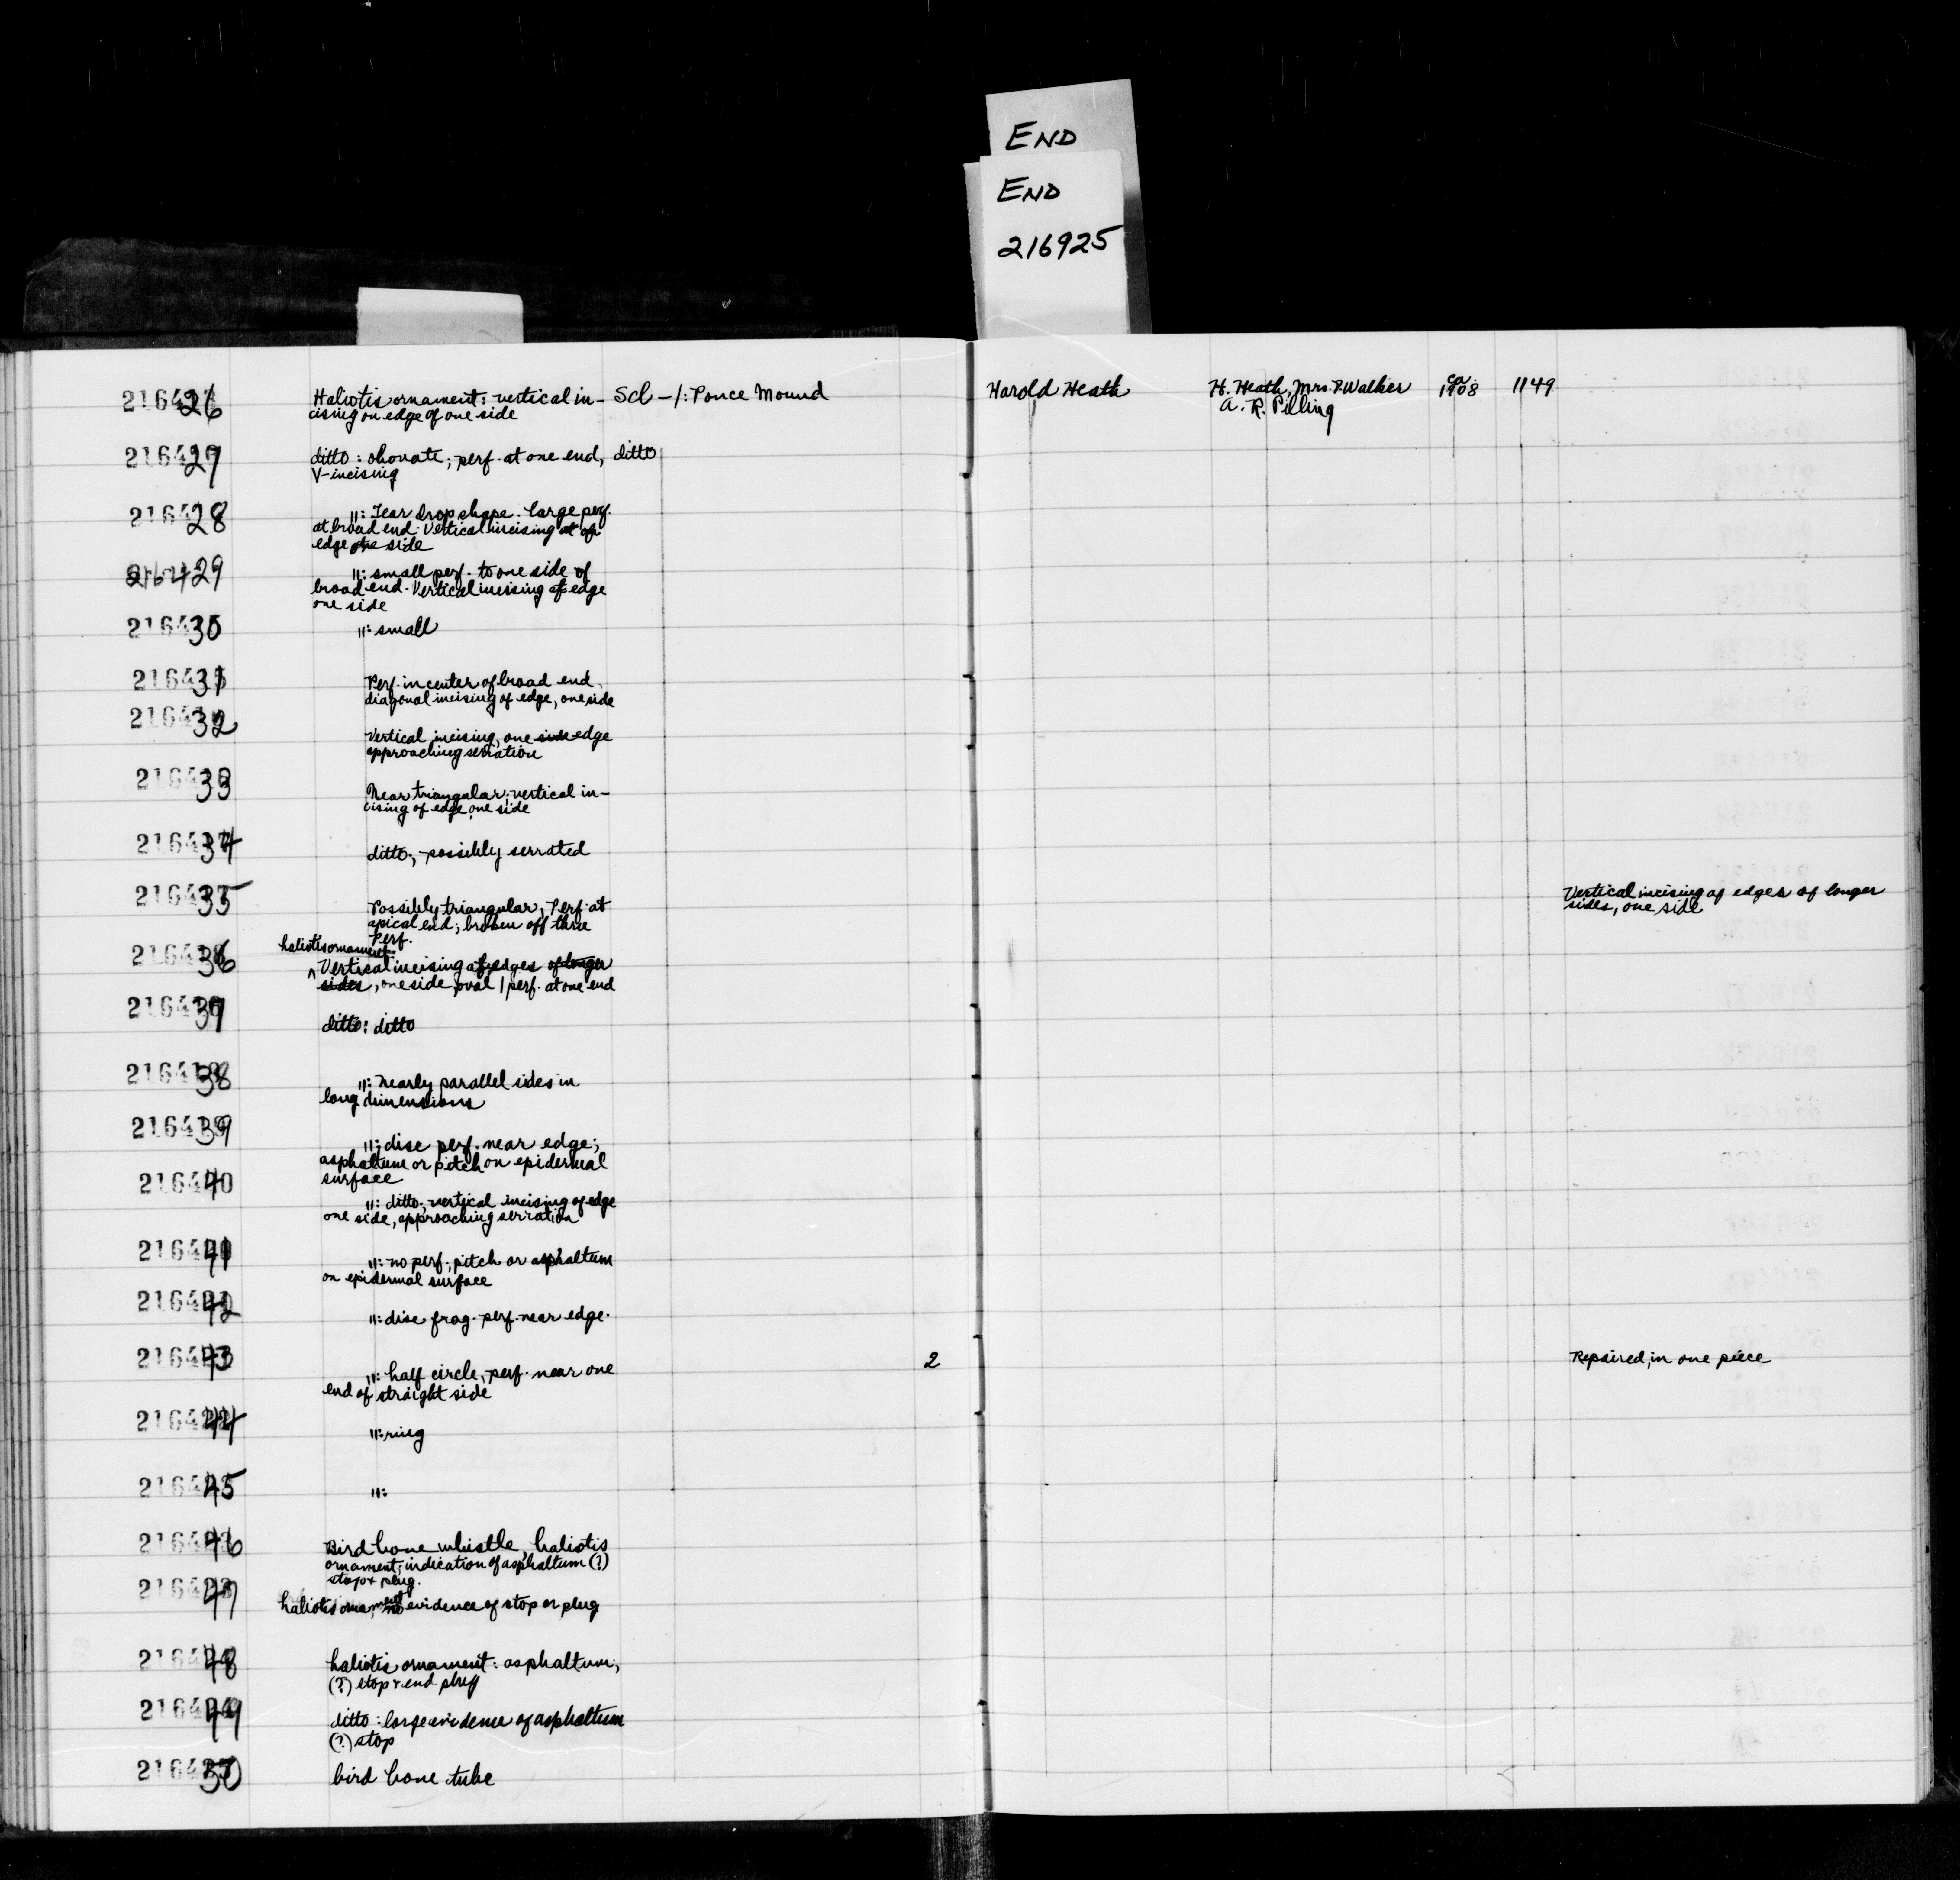 END
END
216925
216426 Haliotis ornament: vertical in- Scl-1: Ponce Mound Harold Heath H. Heath, Mrs. P. Walker ca 1908 1149
cising on edge of one side A. R. Pilling
21642 ditto: obovate; perf. at one end, ditto
V-incising
216428 ": Tear drop shape. large perf.
at broad end. Vertical incising at of
edge one side
216429 ": small perf. to one side of
broad end. Vertical incising of edge
one side
216430 ": small
216431 Perf. in center of broad end
diagonal incising of edge, one side
216432
Vertical incising, one side edge
approaching serration
216433 Near triangular; vertical in-
cising of edge, one side
216434 ditto; possibly serrated
216435 Possibly triangular, Perf. at Vertical incising of edges of longer
apical end; broken off thru sides, one side
Perf.
216436 haliotis ornament:
Vertical incising of edges of longer
sides, one side, oval 1 perf. at one end
216437 ditto: ditto
216438 ": nearly parallel sides in
long dimensions
216439 ": disc perf. near edge;
asphaltum or pitch on epidermal
surface
216440 ": ditto; vertical incising of edge
one side, approaching serration
216441 ": no perf., pitch or asphaltum
on epidermal surface
216442 ": disc frag. perf. near edge.
216443 ": half circle, perf. near one 2 Repaired, in one piece
end of straight side
216444 ": ring
216445 ":
216446 Bird bone whistle, haliotis
ornament; indication of asphaltum (?)
stop + plug.
216447 haliotis ornament no evidence of stop or plug
216448 haliotis ornament: asphaltum,
(?) stop + end plug
216449 ditto: large evidence of asphaltum
(?) stop
216450 bird bone tube